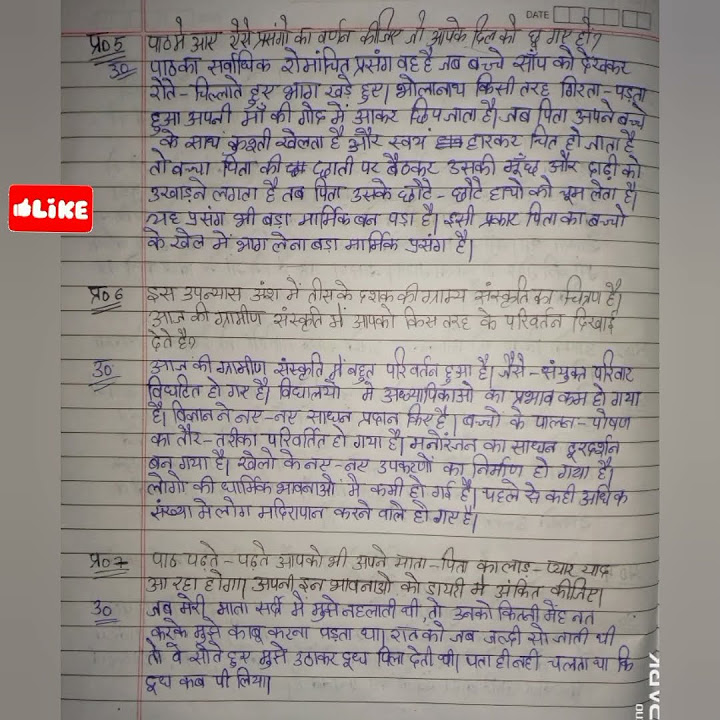 DATE
प्र० 5 पाठ में आए ऐसे प्रसंगो का वर्णन कीजिए जो आपके दिल को छू गए हो?
उ० पाठ का सर्वाधिक रोमांचित प्रसंग वह है जब बच्चे साँप को देखकर
रोते-चिल्लाते हुए भाग खड़े हुए। भोलानाथ किसी तरह गिरता-पड़ता
हुआ अपनी माँ की गोद में आकर छिप जाता है। जब पिता अपने बच्चे
LIKE
के साथ कुश्ती खेलता है और स्वयं हारकर चित हो जाता है
तो बच्चा पिता की छाती पर बैठकर उसकी मूँछ और दाढ़ी को
उखाड़ने लगता है तब पिता उसके छोटे-छोटे हाथो को चूम लेता है।
यह प्रसंग भी बड़ा मार्मिक बन पड़ा है। इसी प्रकार पिता का बच्चो
के खेल में भाग लेना बड़ा मार्मिक प्रसंग है।
प्र० 6 इस उपन्यास अंश में तीस के दशक की ग्राम्य संस्कृति का चित्रण है।
आज की ग्रामीण संस्कृति में आपको किस तरह के परिवर्तन दिखाई
देते है?
उ० आज की ग्रामीण संस्कृति में बहुत परिवर्तन हुआ है। जैसे-संयुक्त परिवार
विघटित हो गए है। विद्यालयो मे अध्यापिकाओ का प्रभाव कम हो गया
है। विज्ञान ने नए-नए साधन प्रदान किए है। बच्चो के पालन-पोषण
का तौर-तरीका परिवर्तित हो गया है। मनोरंजन का साधन दूरदर्शन
बन गया है। खेलो के नए-नए उपकरणों का निर्माण हो गया है।
लोगो की धार्मिक भावनाओ मे कमी हो गई है। पहले से कही अधिक
संख्या मे लोग मदिरापान करने वाले हो गए है।
प्र० 7 पाठ पढ़ते-पढ़ते आपको भी अपने माता-पिता का लाड-प्यार याद
आ रहा होगा। अपनी इन भावनाओ को डायरी मे अंकित कीजिए।
उ० जब मेरी माता सर्दी मे मुझे नहलाती थी, तो उनको कितनी मेहनत
करके मुझे काबू करना पड़ता था। रात को जब जल्दी सो जाती थी
तो वे सोते हुए मुझे उठाकर दूध पिला देती थी। पता ही नहीं चलता था कि
दूध कब पी लिया।